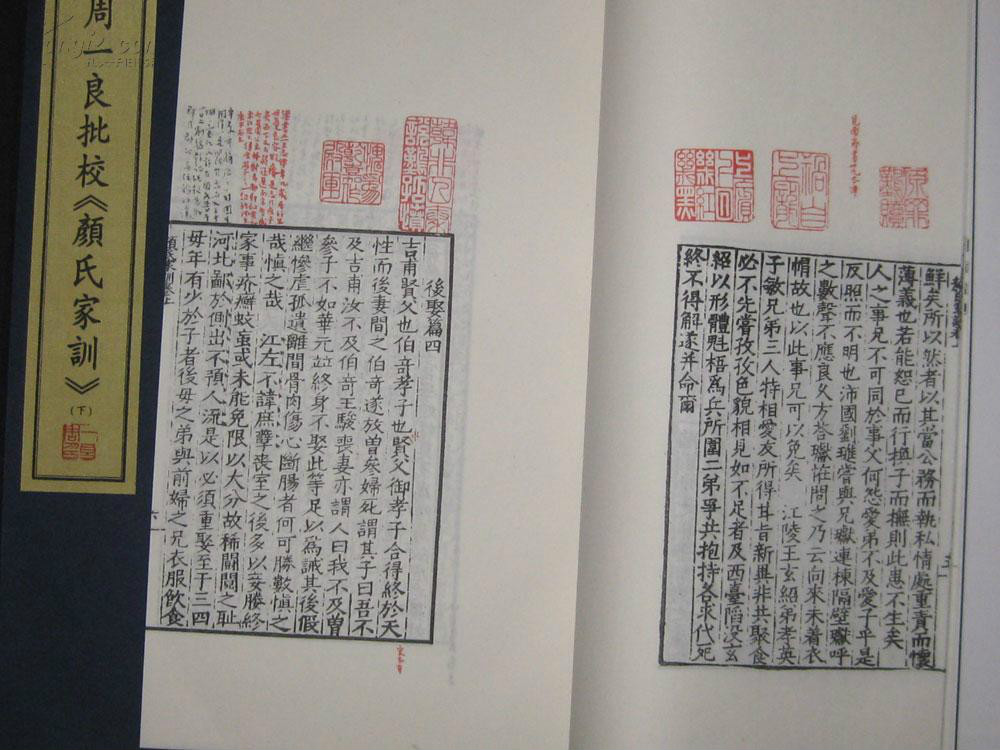 周一良批校《顏氏家訓》(下)
鮮矣所以然者以其當公務而執私情處重責而懷
薄義也若能恕己而行換子而撫則此患不生矣
人之事兄不可同於事父何怨愛弟不及愛子乎是
反照而不明也沛國劉璡嘗與兄瓛連棟隔壁瓛呼
之數聲不應良久方荅瓛恠問之乃云向來未着衣
帽故也以此事兄可以免矣 江陵王玄紹弟孝英
子敏兄弟三人特相愛友所得甘旨新異非共聚食
必不先嘗孜孜色貌相見如不足者及西臺陷沒玄
紹以形體魁梧為兵所圍二弟爭共抱持各求代死
終不得解遂并命爾
後娶篇四
吉甫賢父也伯奇孝子也賢父御孝子合得終於天
性而後妻間之伯奇遂放曾參婦死謂其子曰吾不
及吉甫汝不及伯奇王駿喪妻亦謂人曰我不及曾
參子不如華元並終身不娶此等足以為誡其後假
繼慘虐孤遺離間骨肉傷心斷腸者何可勝數慎之
哉慎之哉 江左不諱庶孽喪室之後多以妾媵終
家事疥癬蚊虻或未能免限以大分故稀鬪鬩之恥
河北鄙於側出不預人流是以必須重娶至于三四
母年有少於子者後母之弟與前婦之兄衣服飲食